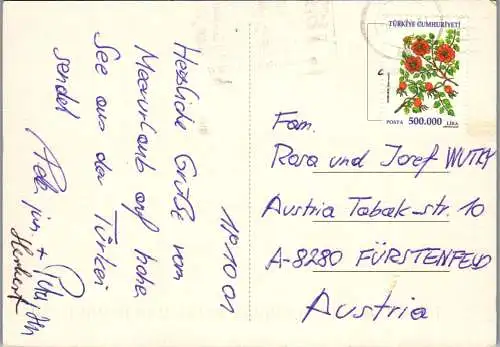 11°10 01
Herzliche Grüße vom
Meerurlaub auf hoher
See aus der Türkei
sendet
jun. +
Herbert
TÜRKİYE CUMHURİYETİ
POSTA 500.000 LİRA
Fam.
Rosa und Josef WUTKY
Austria Tabak-str. 10
A-8280 FÜRSTENFELD
Austria